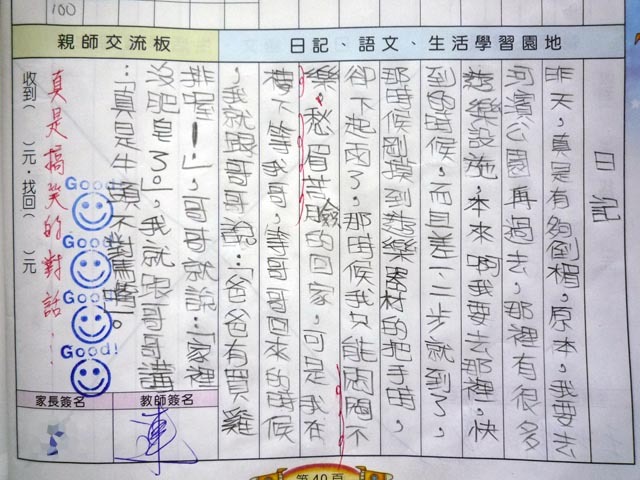 100
日記、語文、生活學習園地
親師交流板
日記
昨天,真是有夠倒楣,原本,我要去
河濱公園再過去,那裡有很多
遊樂設施,本來啊我要去那裡,快
到的時候,而且差一、二步就到了,
那時候剛摸到遊樂器材的把手時,
卻下起雨了,那時候我只能悶悶不
樂,愁眉苦臉的回家,可是我在
樓下等我哥,等哥哥回來的時候
,我就跟哥哥說:「爸爸有買雞
排喔!」,哥哥就說:「家裡
沒肥皂了。」,我就跟哥哥講
:「真是牛頭不對馬嘴」。
Good!
Good!
Good!
Good!
真是搞笑的對話!
收到( )元,找回( )元
教師簽名
家長簽名
連
第40頁